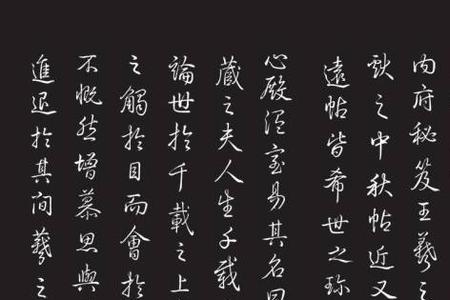 内府秘笈王羲之
獻之中秋帖近又
遠帖皆希世之珍
心殿温室易其名曰
藏之夫人生千載
論世於千載之上
之觸於目而會於
不慨然增慕思與
進退於其間羲之